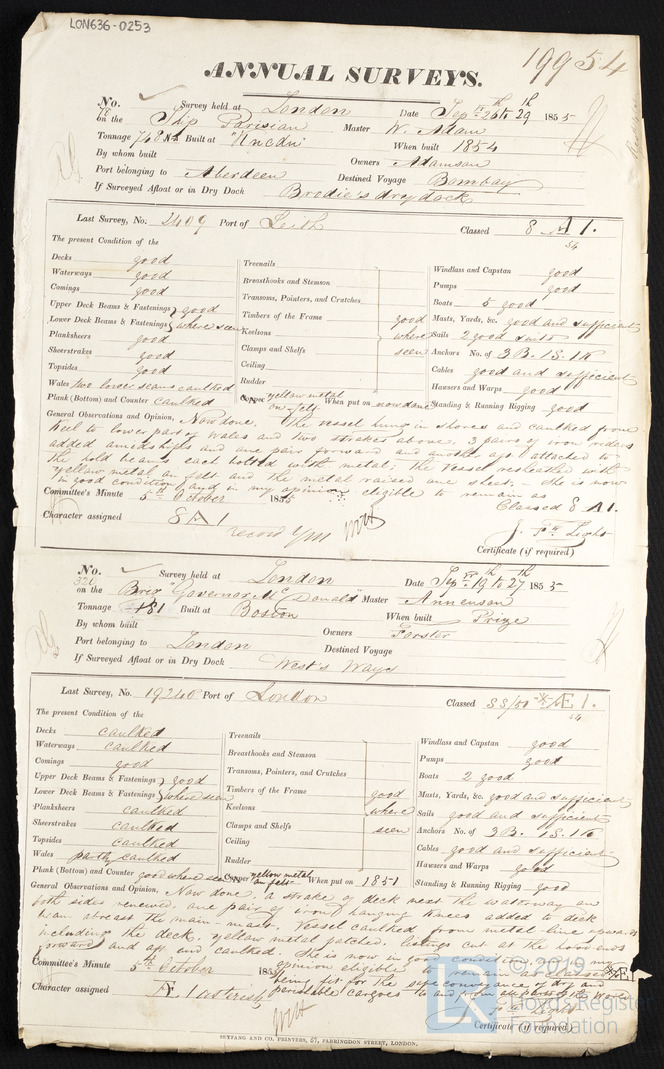 LON636-0253
19954
ANNUAL SURVEYS.
No. 78 Survey held at London Date Sepr 26th to 29th 1855
on the Ship Parisian Master W. Adam
Tonnage 748 Built at When built 1854
By whom built Owners Adamson
Port belonging to Aberdeen Destined Voyage Bombay
If Surveyed Afloat or in Dry Dock Brodie's dry dock
Last Survey, No. 2409 Port of Leith Classed 8 A 1. 54
The present Condition of the
Decks good
Waterways good
Comings good
Upper Deck Beams & Fastenings good
Lower Deck Beams & Fastenings where seen
Planksheers good
Sheerstrakes good
Topsides good
Wales two lower seams caulked
Plank (Bottom) and Counter caulked
Treenails
Breasthooks and Stemson
Transoms, Pointers, and Crutches
Timbers of the Frame good
Keelsons where
Clamps and Shelfs seen
Ceiling
Rudder
Copper yellow metal on felt When put on now done
Windlass and Capstan good
Pumps good
Boats 5 good
Masts, Yards, &c. good and sufficient
Sails 2 good suits
Anchors No. of 3B. 1S. 1K
Cables good and sufficient
Hawsers and Warps good
Standing & Running Rigging good
General Observations and Opinion, Now done. The vessel hung in shores and caulked from
keel to lower part of Wales and two strakes above, 3 pairs of iron riders
added amidships and one pair forward and another aft attached to
the hold beams each bolted with metal; the vessel resheathed with
yellow metal on felt and the metal raised one sheet. – She is now
in good condition and in my opinion eligible to remain as
Classed 8 A 1.
Committee's Minute 5th October 1855
Character assigned 8 A 1
record YM
Certificate (if required)
No. 320 Survey held at London Date Sepr 19th to 27th 1855
on the Brig "Governor McDonald" Master Annenson
Tonnage 181 Built at Boston When built Prize
By whom built Owners Forster
Port belonging to London Destined Voyage
If Surveyed Afloat or in Dry Dock West's Ways
Last Survey, No. 19240 Port of London Classed SS/50 Æ 1. 54
The present Condition of the
Decks caulked
Waterways caulked
Comings good
Upper Deck Beams & Fastenings good
Lower Deck Beams & Fastenings where seen
Planksheers caulked
Sheerstrakes caulked
Topsides caulked
Wales partly caulked
Plank (Bottom) and Counter good where seen
Treenails
Breasthooks and Stemson
Transoms, Pointers, and Crutches
Timbers of the Frame good
Keelsons where
Clamps and Shelfs seen
Ceiling
Rudder
Copper yellow metal on felt When put on 1851
Windlass and Capstan good
Pumps good
Boats 2 good
Masts, Yards, &c. good and sufficient
Sails good and sufficient
Anchors No. of 3B. 1S. 1K
Cables good and sufficient
Hawsers and Warps good
Standing & Running Rigging good
General Observations and Opinion, Now done, a strake of deck next the waterway on
both sides renewed, one pair of iron hanging knees added to deck
beam abreast the main-mast. Vessel caulked from metal-line upwards
including the deck, yellow metal patched, listings cut at the hood ends
forward and aft and caulked. She is now in good condition and in my
opinion eligible to remain as classed Æ
being fit for the safe conveyance of dry and
perishable cargoes to and from all parts of the World
Committee's Minute 5th October 1855
Character assigned Æ 1 asterisk
Certificate (if required)
SEYFANG AND CO. PRINTERS, 57, FARRINGDON STREET, LONDON.
© 2019
Lloyd's Register
Foundation
LR